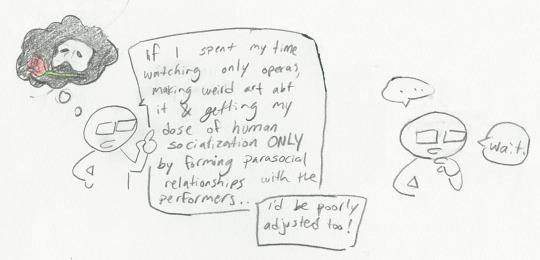 If I spent my time
watching only operas,
making weird art abt
it & getting my
dose of human
socialization ONLY
by forming parasocial
relationships with the
performers..
i'd be poorly
adjusted too!
...
Wait.